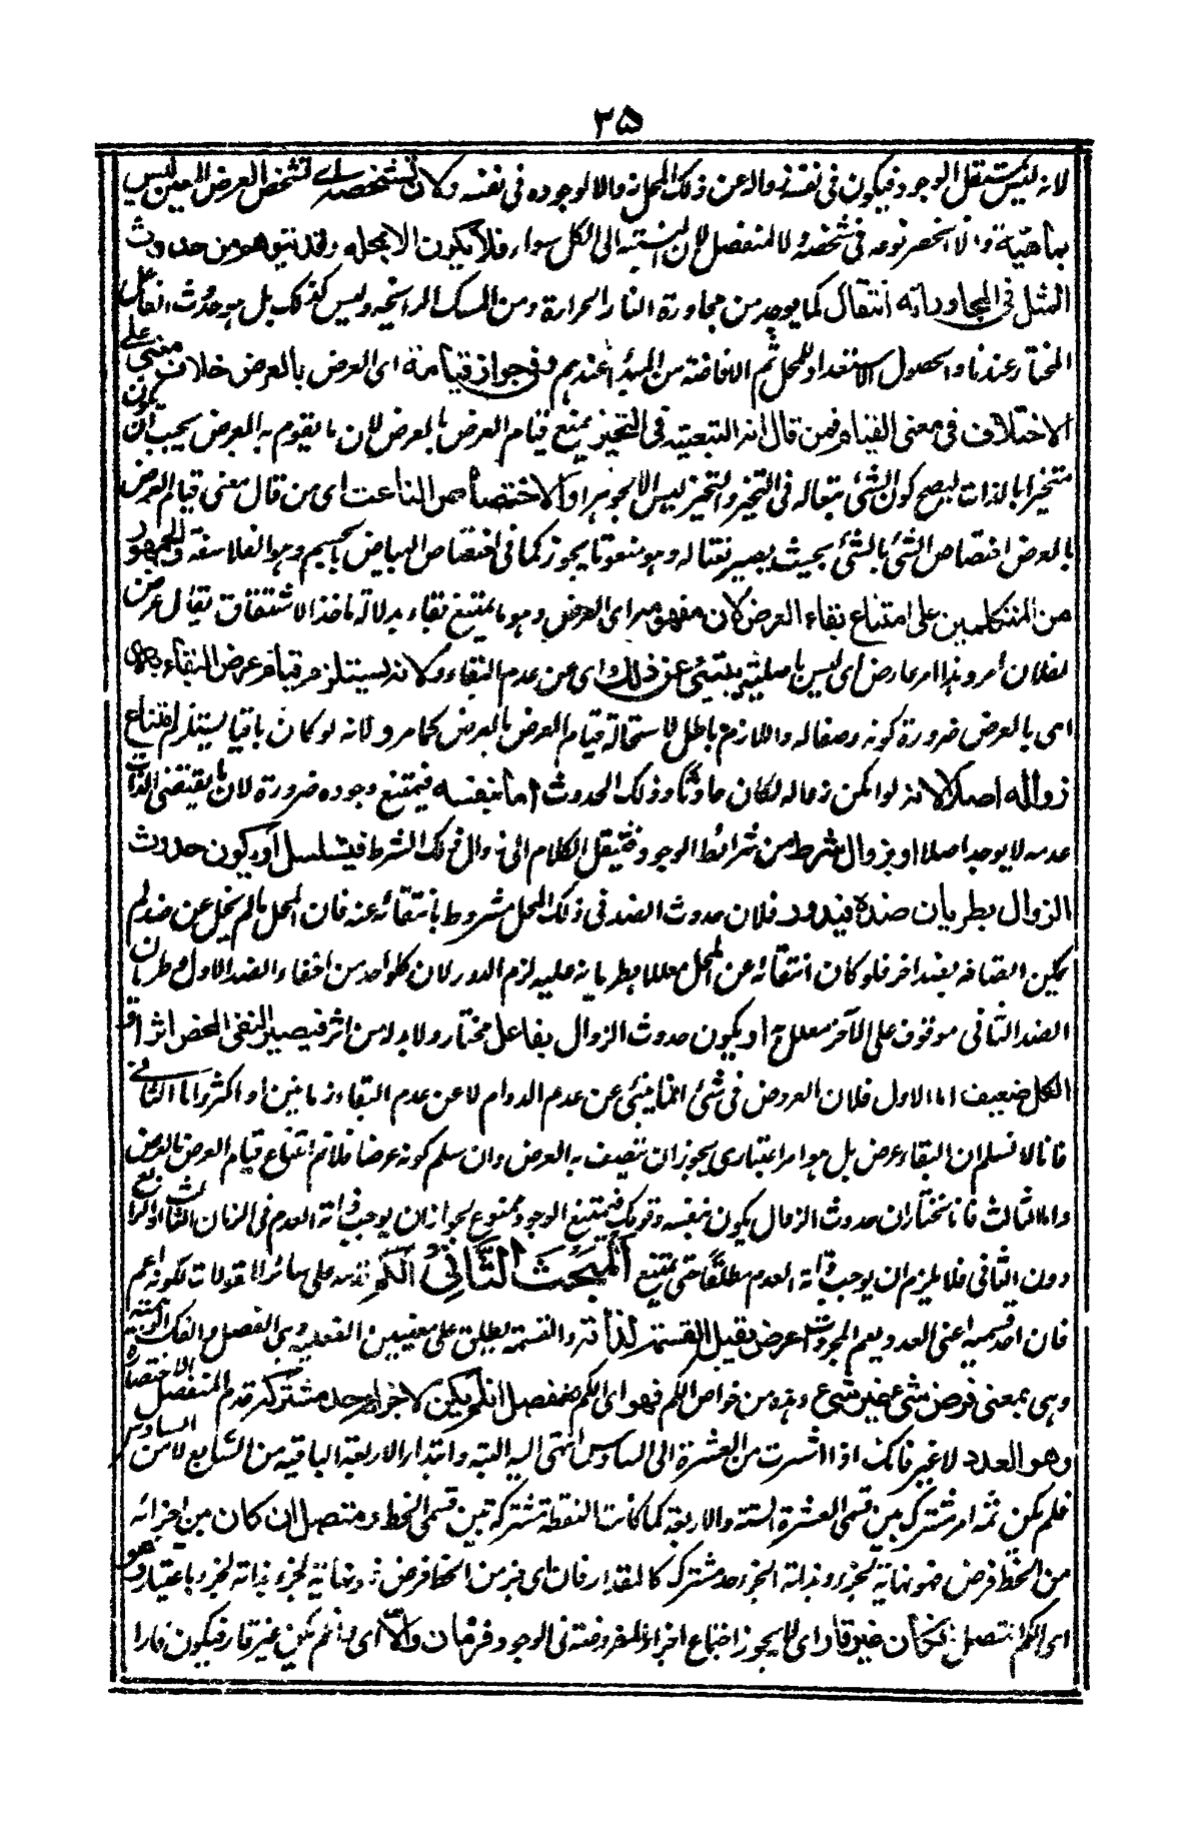 ٣٥
لانه ليس بمستقل الوجود فيكون في نفسه زواله عن ذلك المحل زوالا لوجوده في نفسه ولان تشخصه اي تشخص العرض المعين ليس
بماهيته والا انحصر نوعه في شخصه ولا لمنفصل لان نسبته الى الكل سواء فلا يكون الا بمحله وقد يتوهم من حدوث
المثل في المجاور انه انتقال كما يوجد من مجاورة النار الحرارة ومن المسك الرائحة وليس كذلك بل هو حدوث الفاعل
المختار عندنا والحصول الاستعداد للمحل ثم الافاضة من المبدأ عندهم وفي جواز قيامه اي العرض بالعرض خلاف مبني على
الاختلاف في معنى القيام فمن قال انه التبعية في التحيز يمنع قيام العرض بالعرض لان ما يقوم به العرض يجب ان يكون
متحيزا بالذات ليصح كون الشئ تبعا له في التحيز والتحيز ليس الا بجوهر او الاختصاص الناعت اي من قال معنى قيام العرض
بالعرض اختصاص الشئ بالشئ بحيث يصير نعتا له وهو منعوتا يجوز كما في اختصاص البياض بالجسم وهو الفلاسفة والجمهور
من المتكلمين على امتناع بقاء العرض لان مفهومه اي العرض وهو ما يمتنع بقاءه بدلالة ماخذ الاشتقاق يقال عرض
لفلان امر وهذا امر عارض اي ليس باصلي ينبئ عن ذلك اي عن عدم البقاء ولانه يستلزم قيام عرض البقاء به
اي بالعرض ضرورة كونه وصفا له واللازم باطل لاستحالة قيام العرض بالعرض كما مر ولانه لو كان باقيا يستلزم امتناع
زواله اصلا لانه لو امكن زواله لكان حادثا وذلك الحدوث اما بنفسه فيمتنع وجوده ضرورة لان ما يقتضي الذات
عدمه لا يوجد اصلا او بزوال شرط من شرائط الوجود فينقل الكلام الى زوال ذلك الشرط فيتسلسل او يكون حدوث
الزوال بطريان ضده فيدور فلان حدوث الضد في ذلك المحل مشروط بانتفائه عنه فان المحل ما لم يخل عن ضد لم
يمكن اتصافه بضد اخر فلو كان انتفائه عن المحل معللا بطريانه عليه لزم الدور لان كل واحد من انتفاء الضد الاول وطريان
الضد الثاني موقوف على الآخر معلل به او يكون حدوث الزوال بفاعل مختار ولا بد له من اثر فيصير النفي المحض اثرا و
الكل ضعيف اما الاول فلان العروض في شئ انما ينبئ عن عدم الدوام لا عن عدم البقاء زمانين او اكثر واما الثاني
فانا لا نسلم ان البقاء عرض بل هو امر اعتباري يجوز ان يتصف به العرض وان سلم كونه عرضا فلا نم امتناع قيام العرض بالعرض
واما الثالث فانا نختار ان حدوث الزوال يكون بنفسه وقولك فيمتنع الوجود ممنوع لجواز ان يوجب ذاته العدم في الزمان الثالث او الرابع
دون الثاني فلا يلزم ان يوجب ذاته العدم مطلقا حتى يمتنع المبحث الثاني الكم قدمه على سائر المقولات لكونه اعم
فان احد قسميه اعني العدد يعم المجردات عرض يقبل القسمة لذاته والقسمة يطلق على معنيين الفعلية وهي الفصل والفك والوهمية
وهي بمعنى فرض شئ غير شئ وهذه من خواص الكم فهو اي الكم منفصل ان لم يكن لاجزائه حد مشترك قدم المنفصل
وهو العدد لا غير فانك اذا اشرت من العشرة الى السادس انتهى اليه الستة وابتداء الاربعة الباقية من السابع لا من السادس
فلم يكن ثمه امر مشترك بين قسمي العشرة الستة والاربعة كما كانت النقطة مشتركة بين قسمي الخط ومتصل ان كان بين اجزائه
من الخط فرض فهو نهاية لجزء وبداية لجزء حد مشترك كالمقدار فان اي جزء من الخط فرض فهو نهاية لجزء بداية لجزء باعتبار وهو
اي الكم المتصل ان كان غير قار اي لا يجوز اجتماع اجزاءه المفروضة في الوجود فزمان والا اي وان لم يكن غير قار فيكون قارا